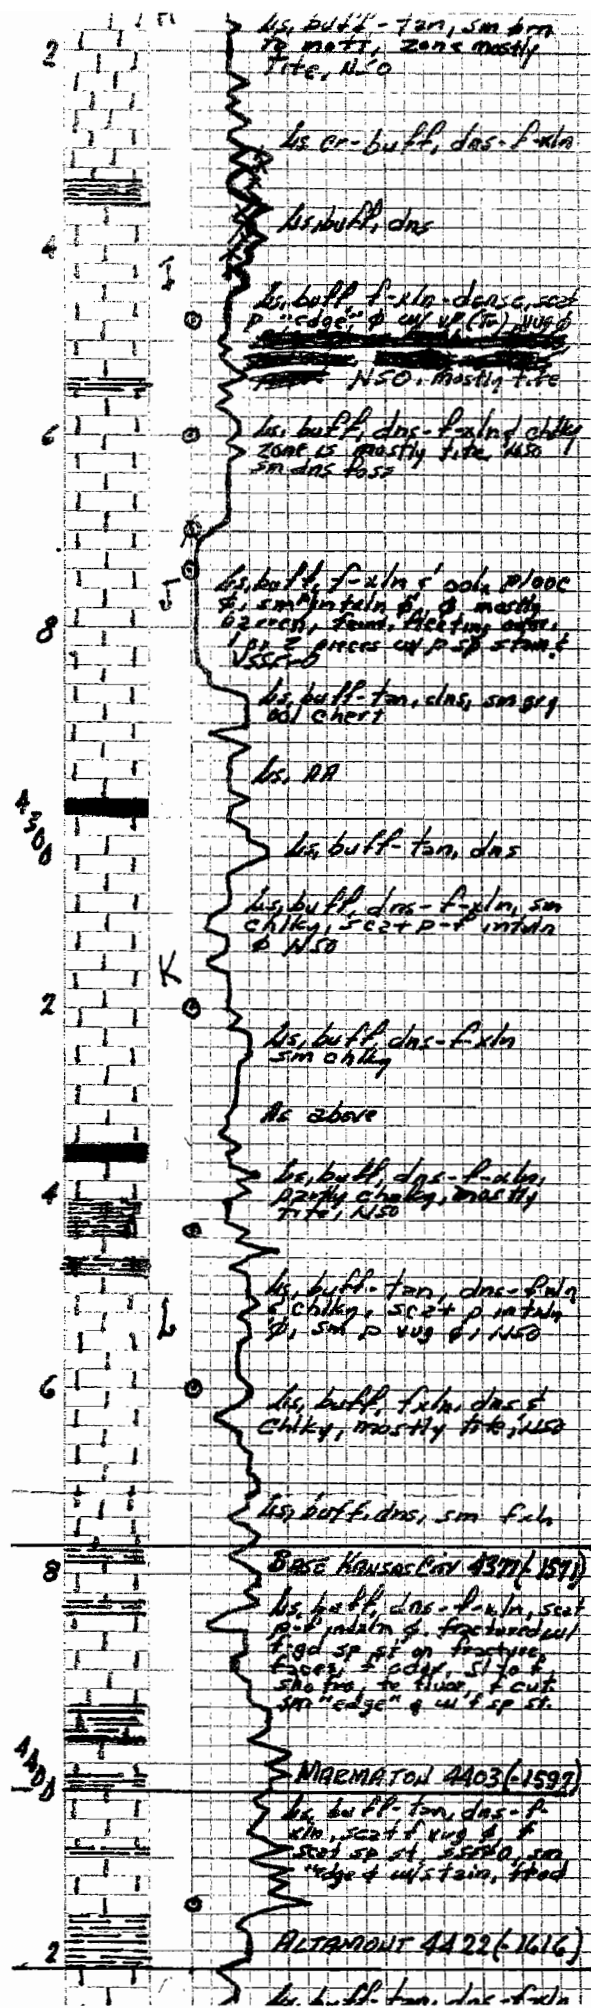 H
2
Ls, buff-tan, sm brn
to mott, zone mostly
Tite, NSO
Ls cr-buff, dns-f-xln
Ls, buff, dns
4
I
Ls, buff f-xln-dense, scat
p "edge" ϕ w/ vug ϕ
NSO, mostly tite
6
Ls, buff, dns-f-xln & chlky
zone is mostly tite, NSO
sm dns foss
J
8
Ls, buff, f-xln &
ϕ, sm intxln ϕ, ϕ mostly
barren, faint, fleeting odor,
1 or 2 pieces w/ p sp stain &
VSSFO
Ls, buff-tan, dns, sm gry
ool chert
Ls, AA
4300
Ls, buff-tan, dns
Ls, buff, dns-f-xln, sm
chlky, scat p-f intxln
ϕ NSO
K
2
Ls, buff, dns-f-xln
sm chlky
As above
4
Ls, buff, dns-f-xln,
partly chalky, mostly
tite, NSO
Ls, buff-tan, dns-fxln
& chlky, scat p intxln
ϕ, sm p vug ϕ, NSO
L
6
Ls, buff, fxln, dns &
chlky, mostly tite, NSO
Ls, buff, dns, sm fxln
8
BASE KANSAS CITY 4377(-1571)
Ls, buff, dns-f-xln, scat
p-f intxln ϕ, fractured w/
f-gd sp st on fracture
faces, f odor, sl to f
sho fro, fluor, f cut
sm "edge" ϕ w/ f sp st.
4400
MARMATON 4403(-1597)
Ls, buff-tan, dns-f-
xln, scat f vug ϕ
scat sp st, SSFO, sm
"edge ϕ w/stain,
2
ALTAMONT 4422(-1616)
Ls, buff-tan, dns-fxln